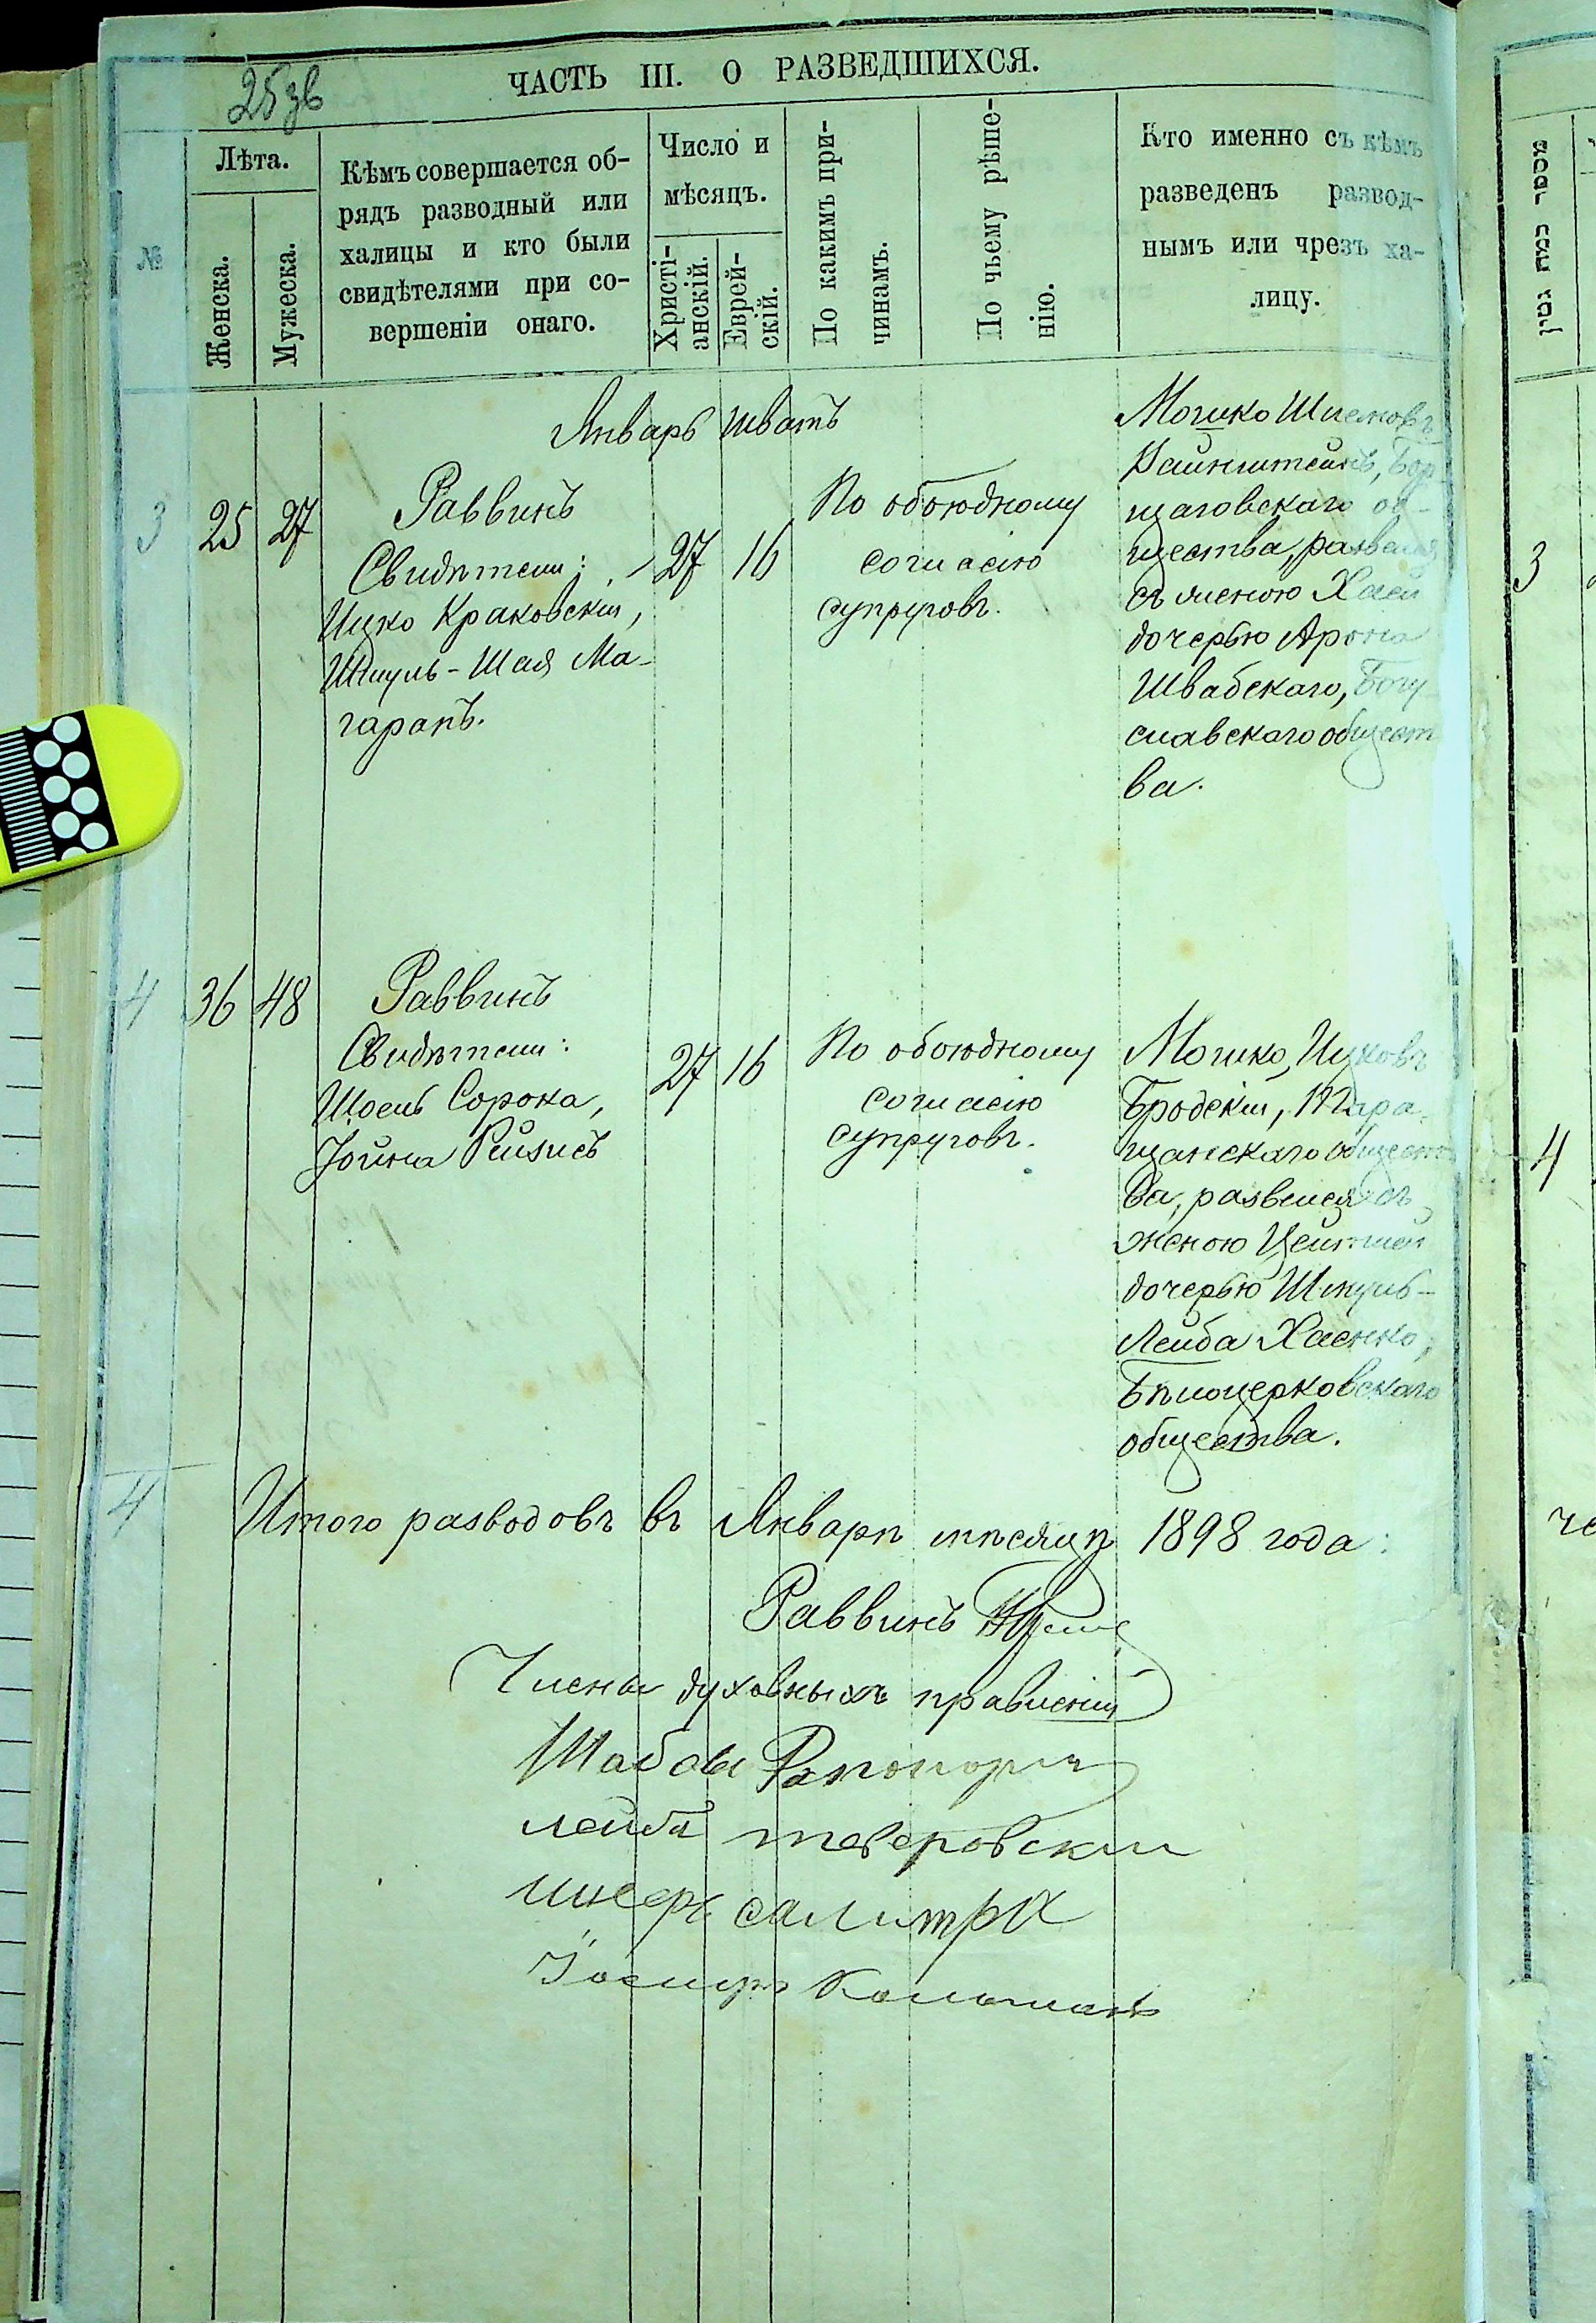 25зв
ЧАСТЬ III. О РАЗВЕДШИХСЯ.
№
Лѣта.
Женска.
Мужеска.
Кѣмъ совершается об-
рядъ разводный или
халицы и кто были
свидѣтелями при со-
вершеніи онаго.
Число и
мѣсяцъ.
Христі-
анскій.
Еврей-
скій.
По какимъ при-
чинамъ.
По чьему рѣше-
нію.
Кто именно съ кѣмъ
разведенъ развод-
нымъ или чрезъ ха-
лицу.
מספר כמה גטין
Январь Шватъ
3 25 27
Раввинъ
Свидѣтели:
Ицко Краковскій,
Шмуль-Шая Ма-
гарапъ.
27 16
По обоюдному
согласію
супруговъ.
Мошко
Вайнштейнъ, Бор
щаговскаго об-
щества, развелся
съ женою Хаей
дочерью Арона
Швабскаго, Богу
славскаго общест
ва.
3
4 36 48
Раввинъ
Свидѣтели:
Сорока,
Іойна Рейзисъ
27 16
По обоюдному
согласію
супруговъ.
Мошко Ицковъ
Бродскій, Тара-
щанскаго общест
ва, развелся съ
женою
дочерью Шмуль-
Лейба Хаенко,
Бѣлоцерковскаго
общества.
4
4
Итого разводовъ въ Январѣ мѣсяцѣ 1898 года:
Раввинъ
Члены духовныхъ правленій
Рапопортъ
лейба тверовскии
салитра